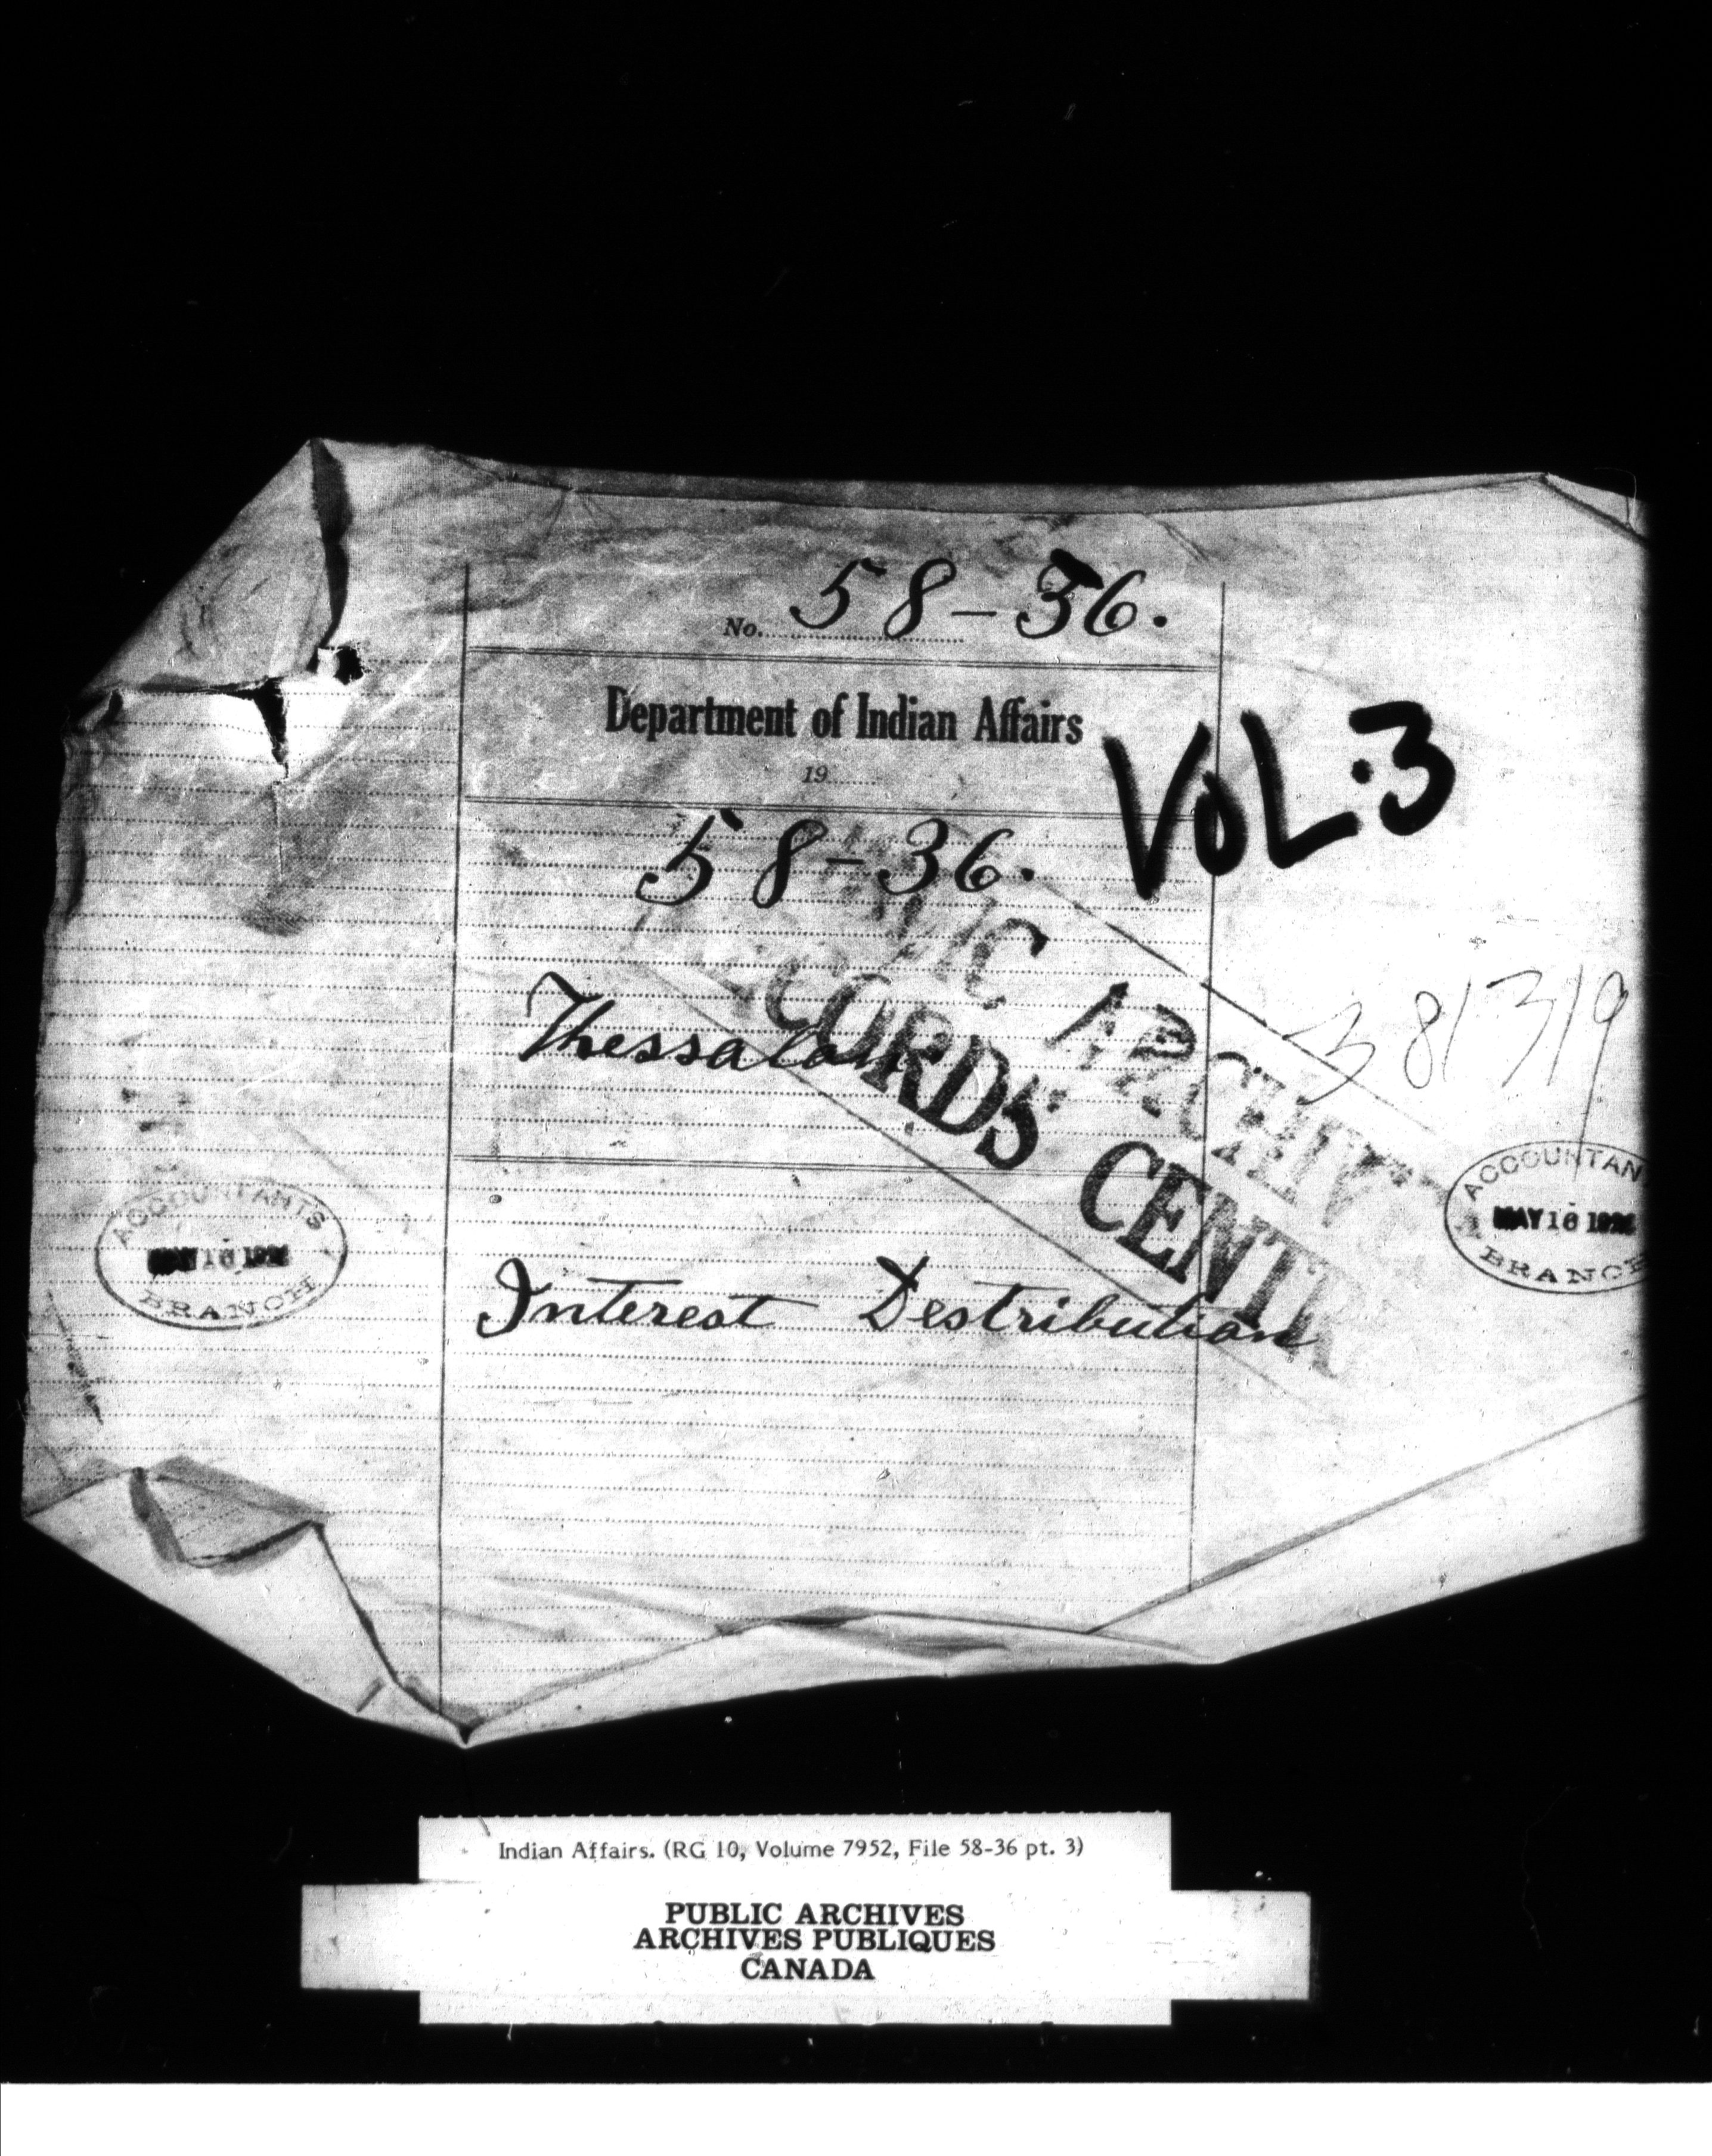 No. 58-36.
Department of Indian Affairs
19
VOL. 3
58-36.
ARCHIV
RECORDS CENTR
381319
Thessalon
ACCOUNTANTS
MAY 16
BRANCH
ACCOUNTAN
MAY 16
BRANCH
Interest Distribution
Indian Affairs. (RG 10, Volume 7952, File 58-36 pt. 3)
PUBLIC ARCHIVES
ARCHIVES PUBLIQUES
CANADA